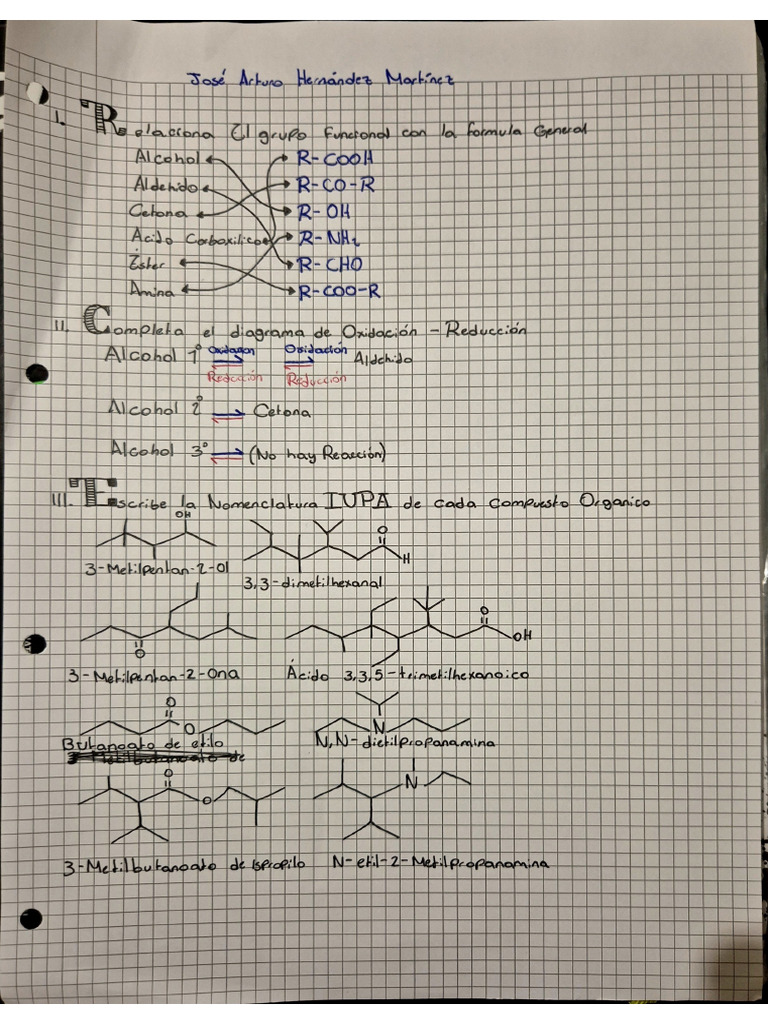 José Arturo Hernández Martínez
I. Relaciona El grupo Funcional con la formula General
Alcohol R-COOH
Aldehido R-CO-R
Cetona R-OH
Ácido Carboxilico R-NH2
Éster R-CHO
Amina R-COO-R
II. Completa el diagrama de Oxidación - Reducción
Alcohol 1° Oxidación Oxidación Aldehido
Reducción Reducción
Alcohol 2° Cetona
Alcohol 3° (No hay Reacción)
III. Escribe la Nomenclatura IUPA de cada compuesto Organico
OH
O
H
3-Metilpentan-2-Ol
3,3-dimetilhexanal
O
O
OH
3-Metilpentan-2-Ona Ácido 3,3,5-trimetilhexanoico
O
O
N
Butanoato de etilo N,N-dietilpropanamina
O
N
O
3-Metilbutanoato de Ispropilo N-etil-2-Metilpropanamina